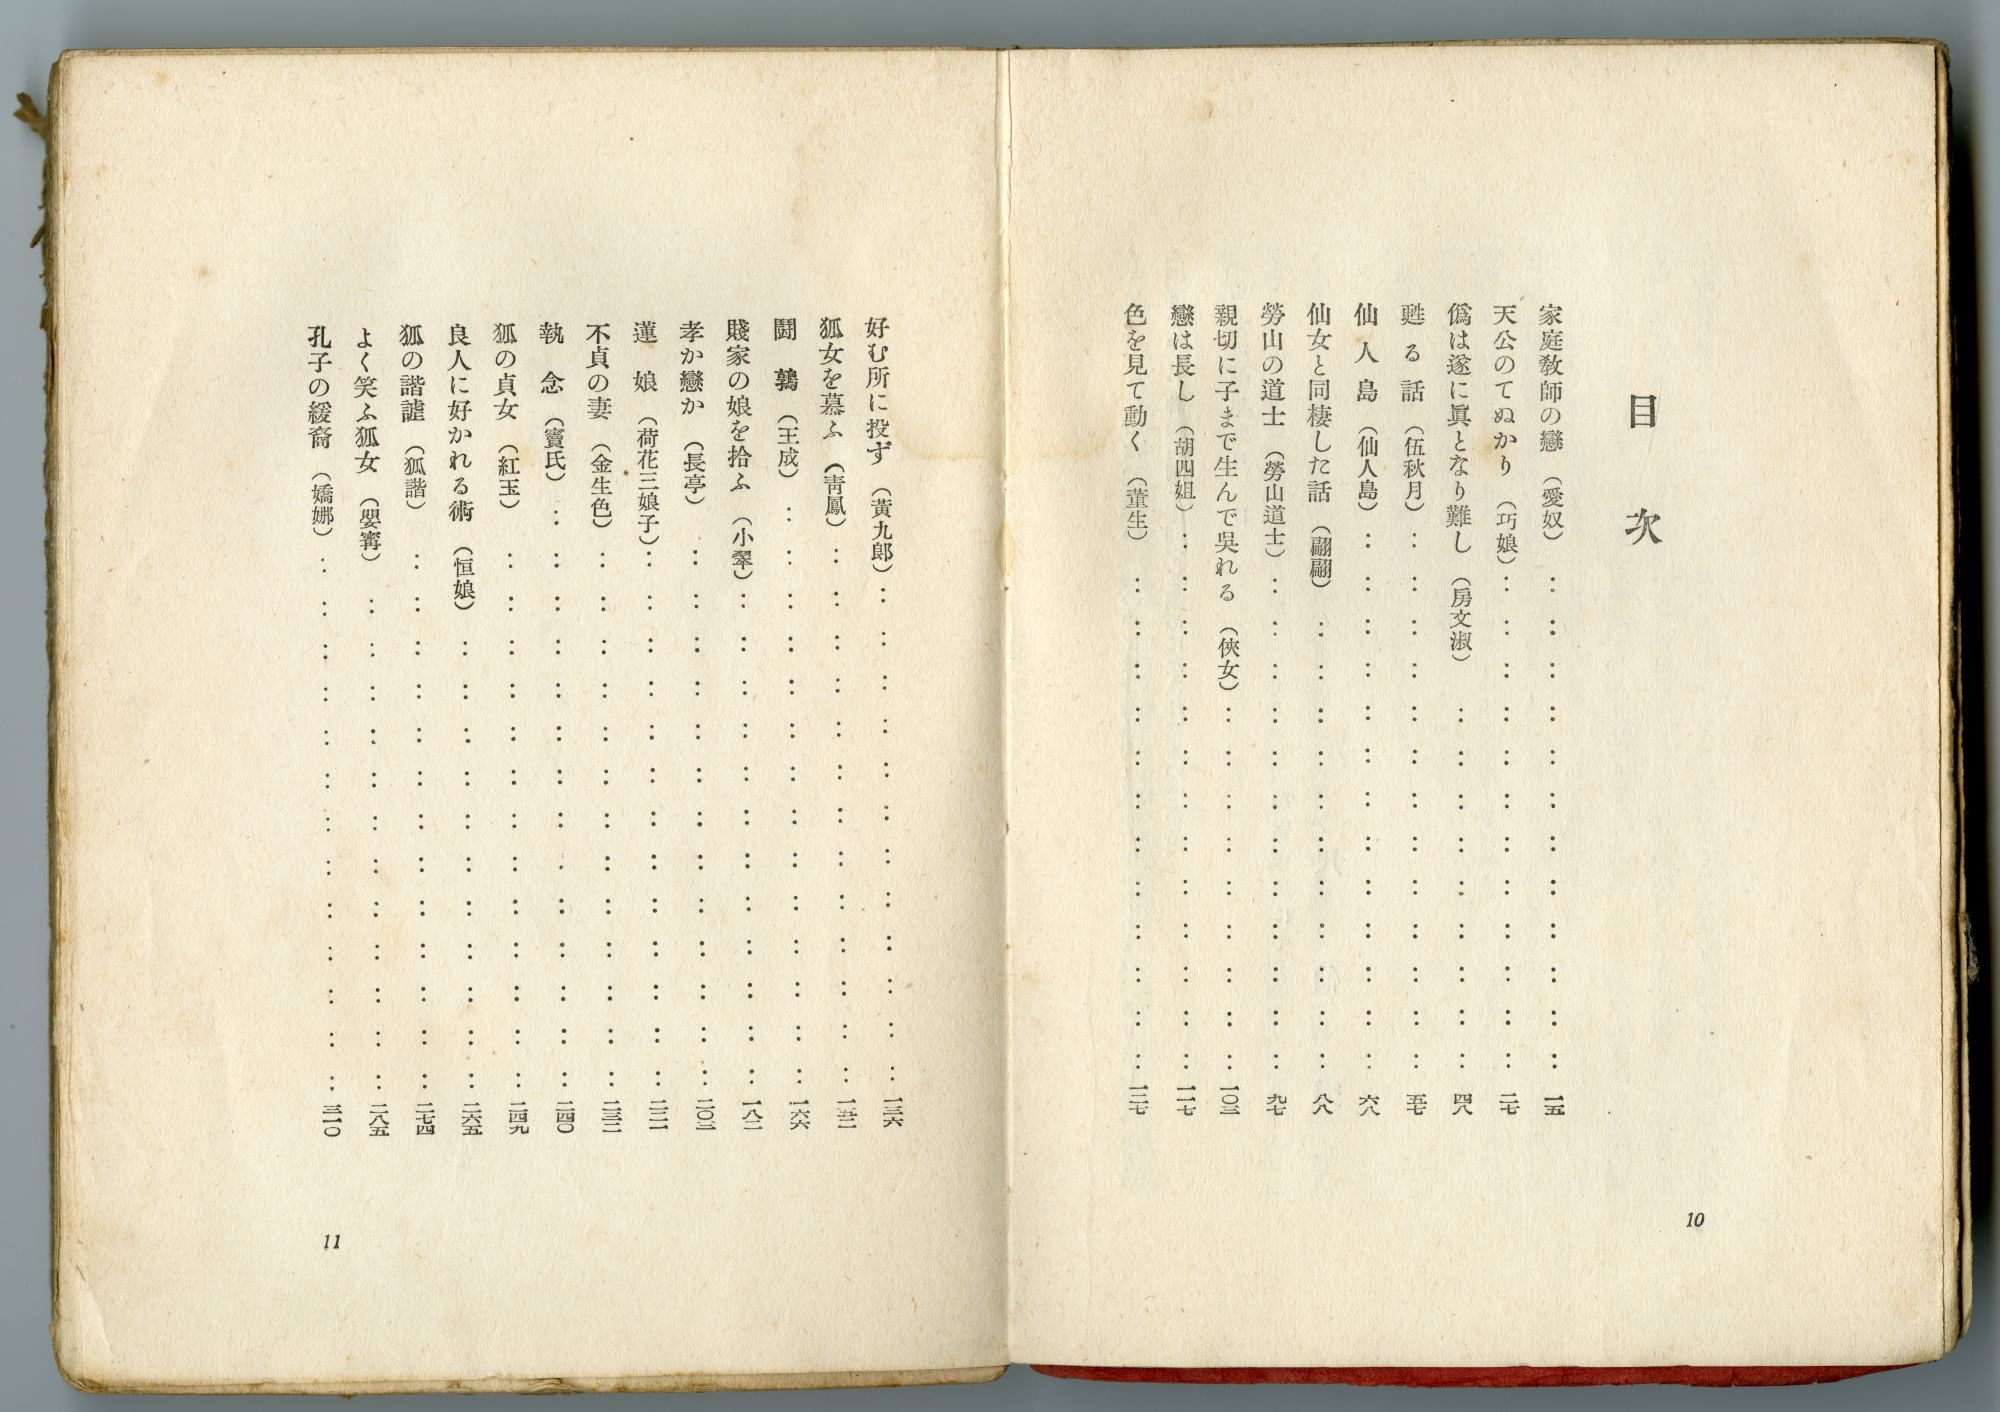 目次
家庭教師の戀（愛奴）……………一五
天公のてぬかり（巧娘）……………二七
僞は遂に眞となり難し（房文淑）……………四八
甦る話（伍秋月）……………五七
仙人島（仙人島）……………六八
仙女と同棲した話（翩翩）……………八八
勞山の道士（勞山道士）……………九七
親切に子まで生んで吳れる（俠女）……………一〇三
戀は長し（胡四姐）……………一一七
色を見て動く（董生）……………一二七
10
好む所に投ず（黃九郎）……………一三六
狐女を慕ふ（靑鳳）……………一五二
鬪鶉（王成）……………一六六
賤家の娘を拾ふ（小翠）……………一八二
孝か戀か（長亭）……………二〇三
蓮娘（荷花三娘子）……………二二一
不貞の妻（金生色）……………二三二
執念（竇氏）……………二四〇
狐の貞女（紅玉）……………二四九
良人に好かれる術（恒娘）……………二六五
狐の諧謔（狐諧）……………二七四
よく笑ふ狐女（嬰寗）……………二八五
孔子の緩裔（嬌娜）……………三一〇
11